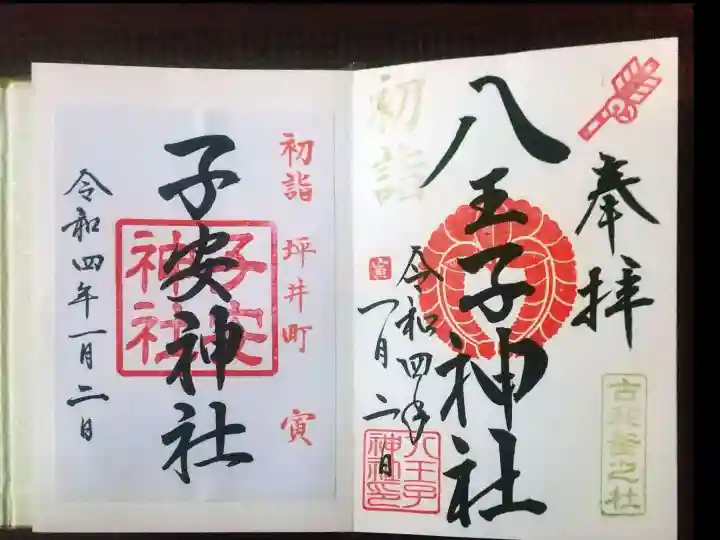 奉拝
八王子神社
初詣
寅
令和四年
一月二日
八王子
神社印
初詣 坪井町 寅
子安神社
子安
神社
令和四年一月二日